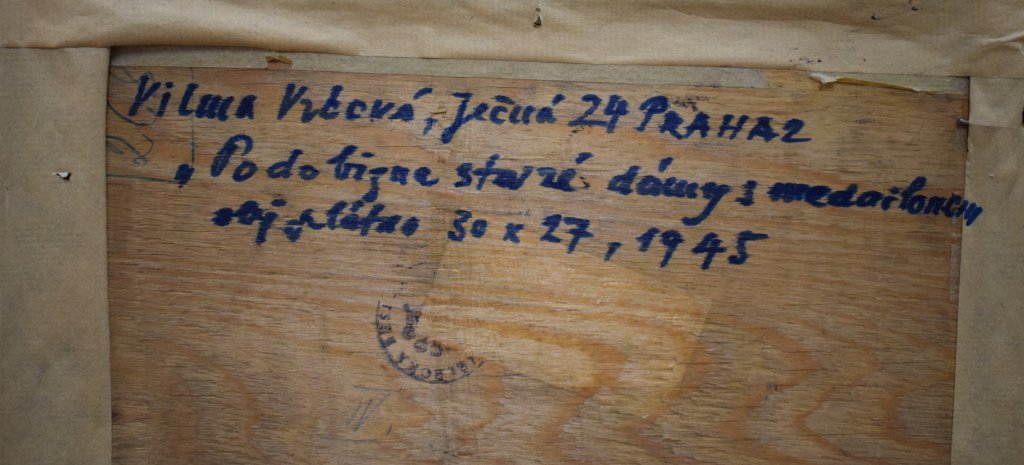 Vilma Vrbová, Ječná 24 PRAHA 2
„Podobizna staré dámy s medailonem"
olej, plátno 30 x 27, 1945